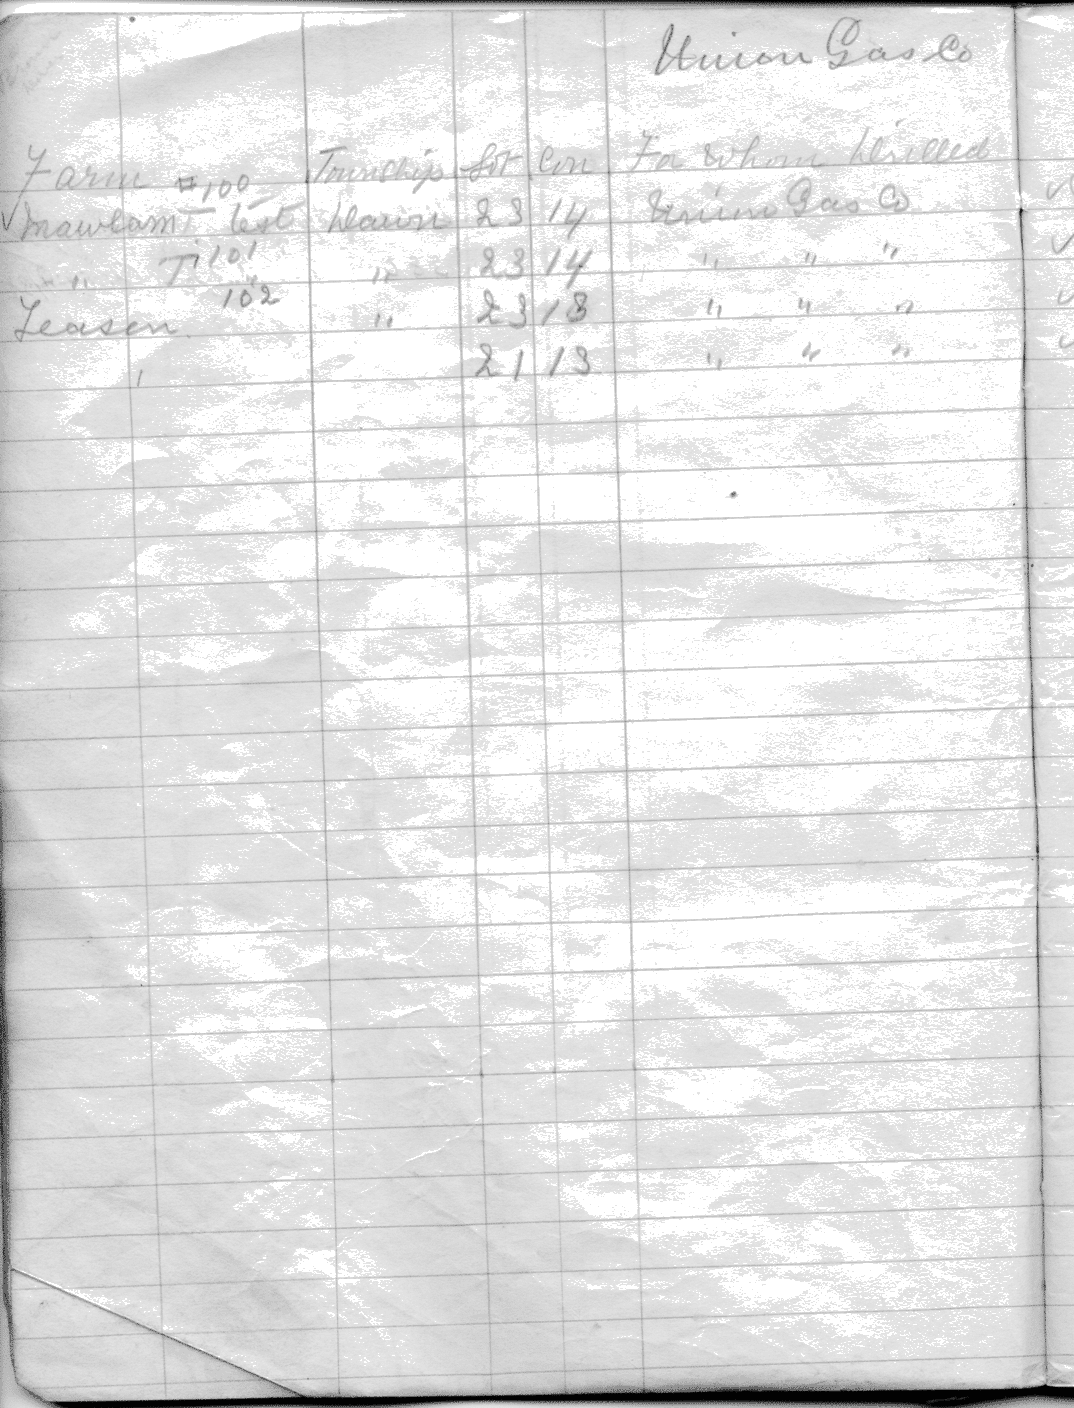 Union Gas Co
Farm Township Lot Con For Whom Drilled
#100
Mawlam T test Dawn 23 14 Union Gas Co
" T 101 " 23 14 " " "
102
Leasen " 23 13 " " "
" 21 13 " " "